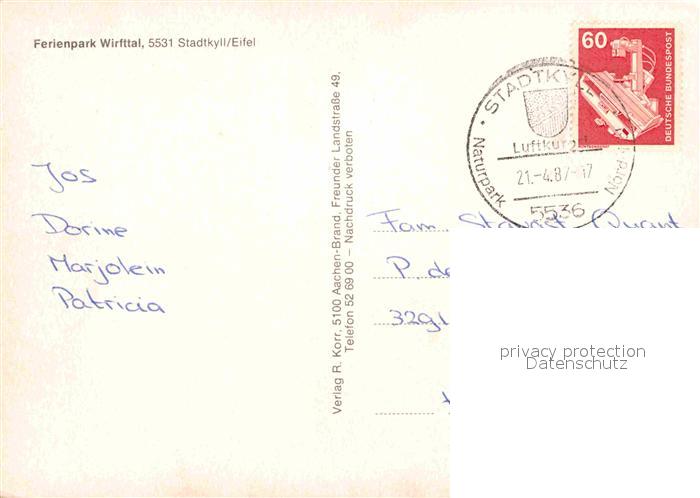 Ferienpark Wirfttal, 5531 Stadtkyll/Eifel
Jos
Dorine
Marjolein
Patricia
Verlag R. Korr, 5100 Aachen-Brand, Freunder Landstraße 49,
Telefon 52 69 00 – Nachdruck verboten
60
DEUTSCHE BUNDESPOST
STADTKYLL
Luftkurort
21.-4.87-17
Naturpark Nord
5536
Fam.
P. de
privacy protection
Datenschutz